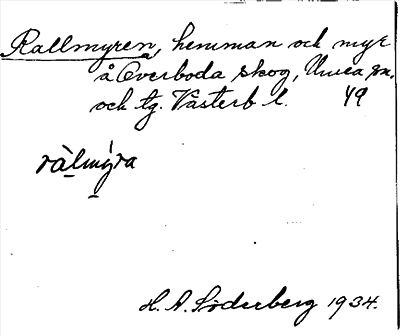 Rallmyren, hemman och myr
å Överboda skog, Umeå sn.
och tg. Västerb l. 49
ràlmýra
H. A. Söderberg 1934.